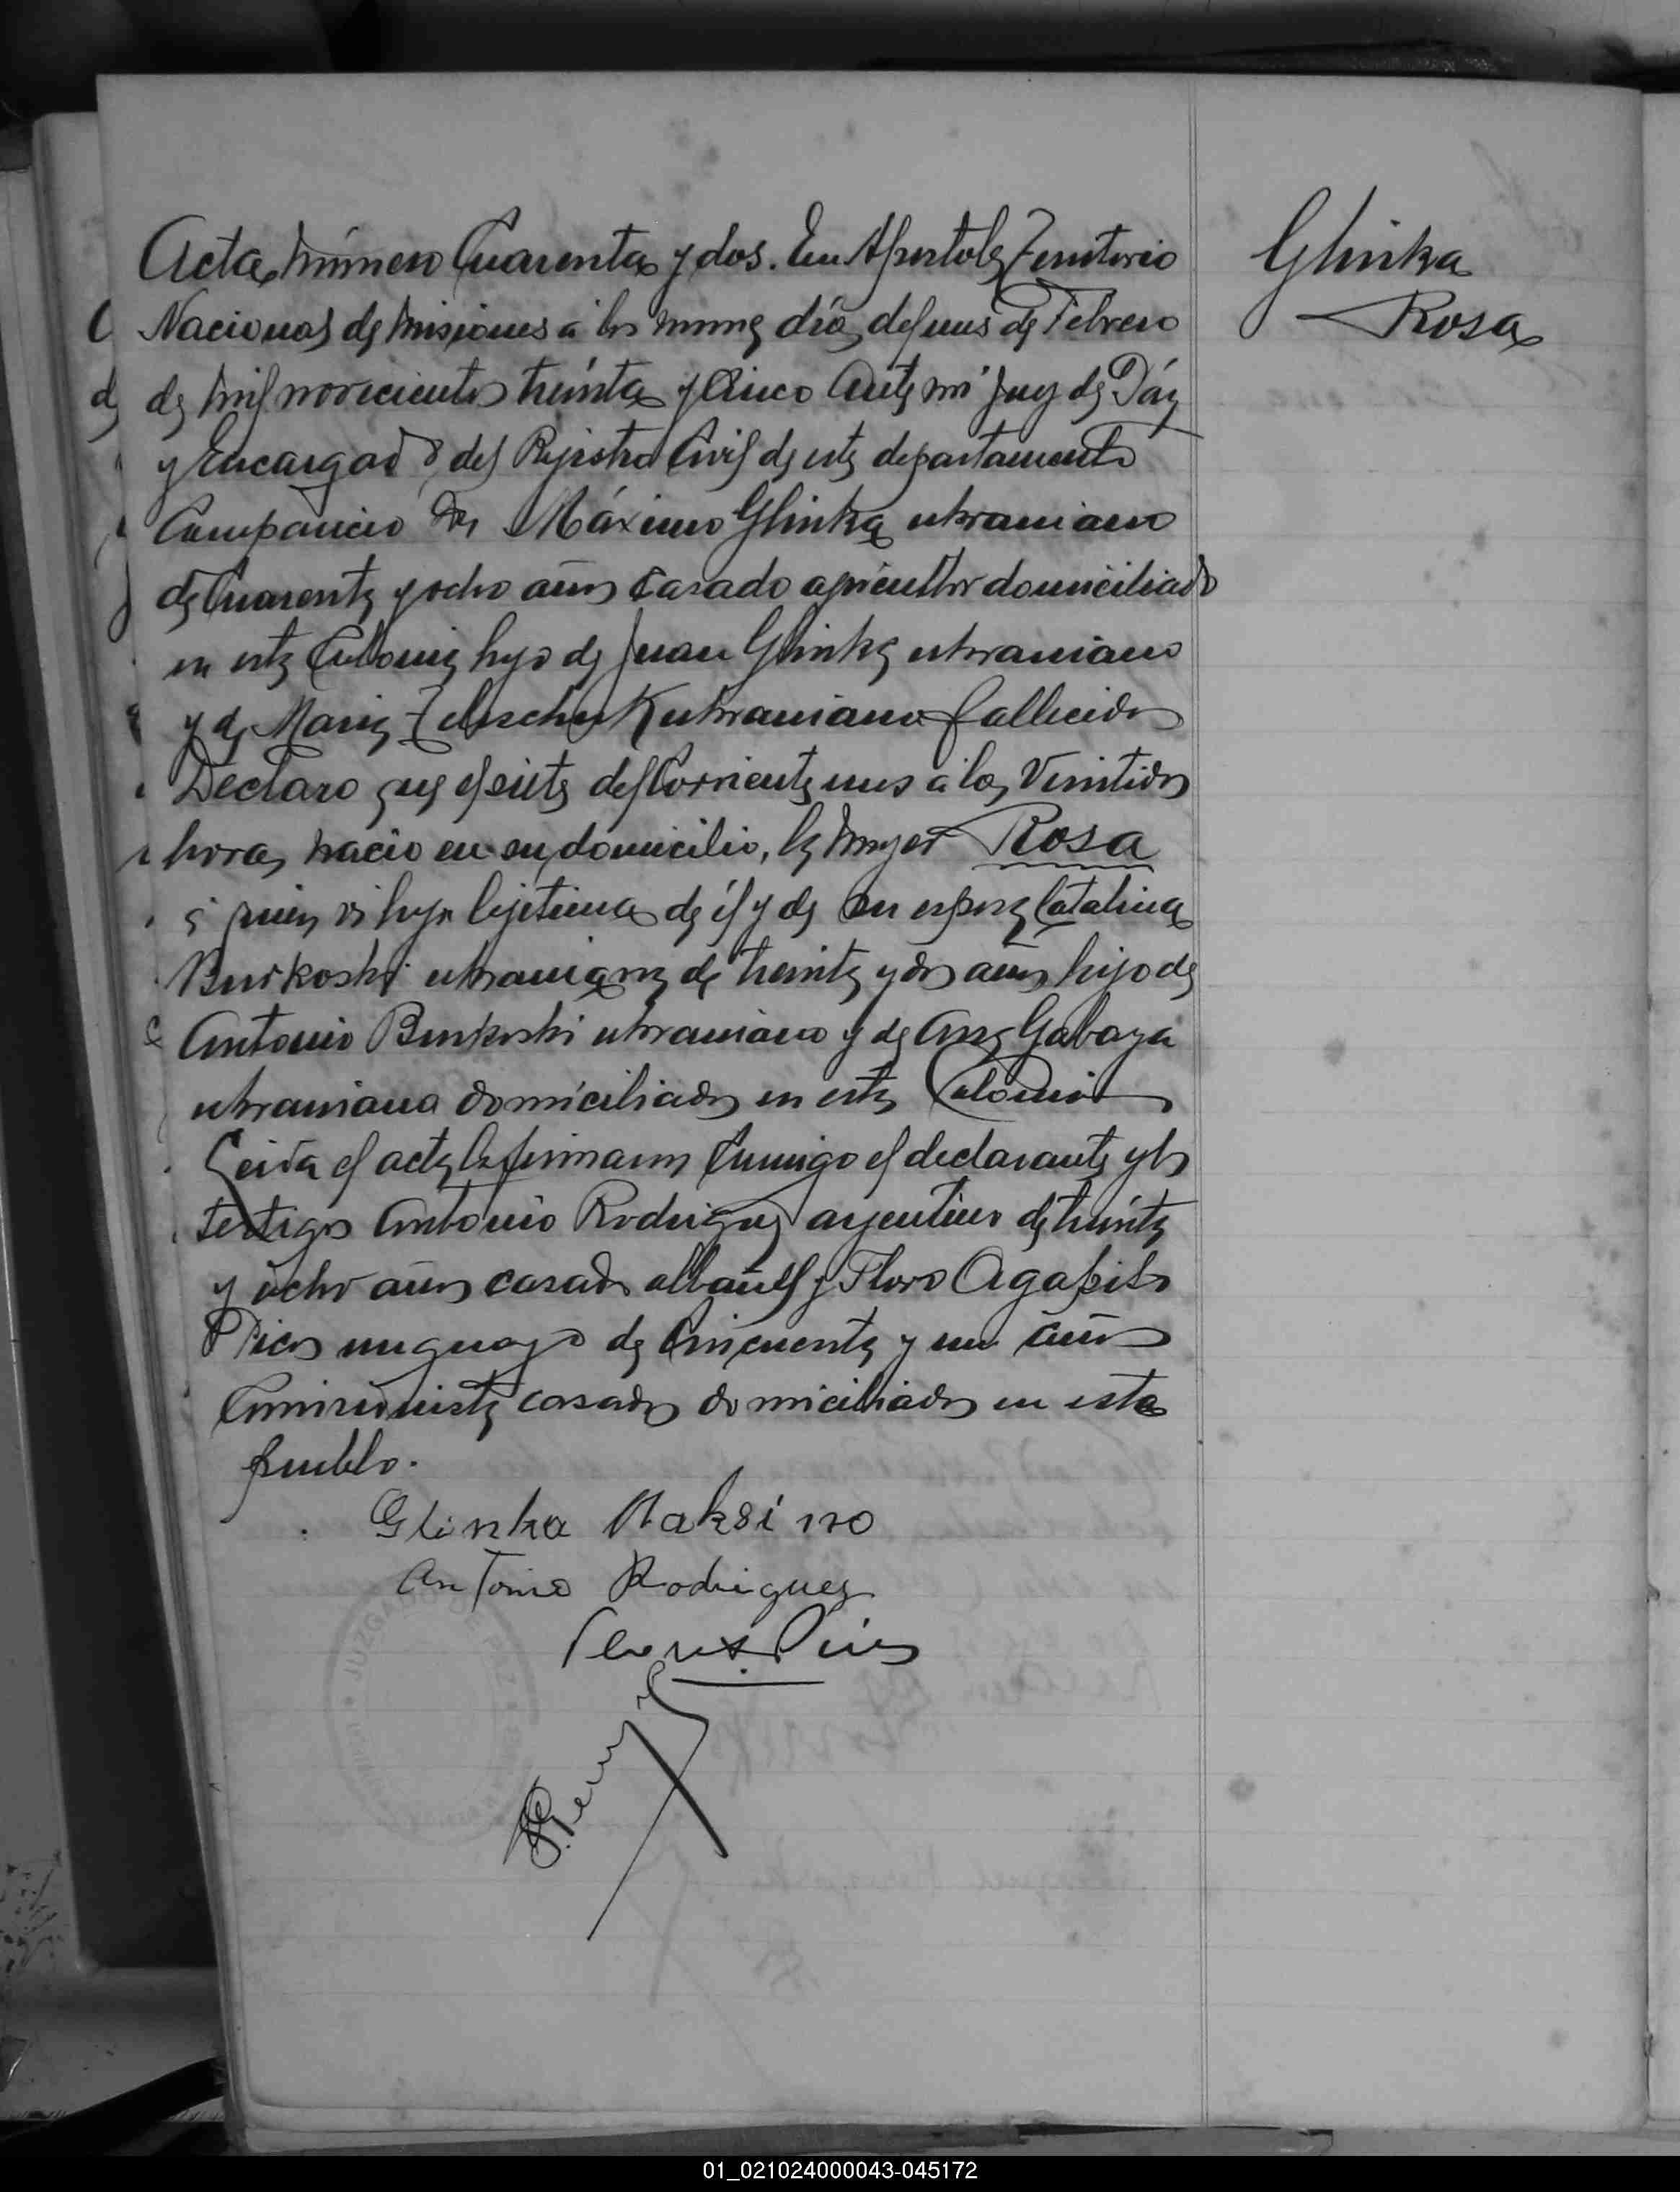 Glinka
Rosa
Acta número Cuarenta y dos. En Apostoles Territorio
Nacional de Misiones á los nueve días del mes de Febrero
de mil novecientos treinta y Cinco Ante mi Juez de Páz
y Encargado del Rejistro Civil de este departamento
Comparecio Don Máximo Glinka ukraniano
de Cuarenta y ocho años Casado agricultor domiciliado
en esta Colonia hijo de Juan Glinka ukraniano
y de Maria ukraniana fallecidos
Declaro que el siete del Corriente mes á las Veintidos
horas nacio en su domicilio, la mujer Rosa
quien es hija lejitima de él y de su esposa Catalina
Burkoski ukraniana de treinta y dos años hija de
Antonio Burkoski ukraniano y de Ana Gabaya
ukraniana domiciliados en esta Colonia
Leida el acta la firmaron Conmigo el declarante y los
testigos Antonio Rodriguez argentino de treinta
y ocho años casado albañil y Floro Agapito
Pires uruguayo de Cincuenta y un años
Comisionista casados domiciliados en este
pueblo.
Glinka Maksimo
Antonio Rodriguez
JUZGADO DE PAZ
01_021024000043-045172